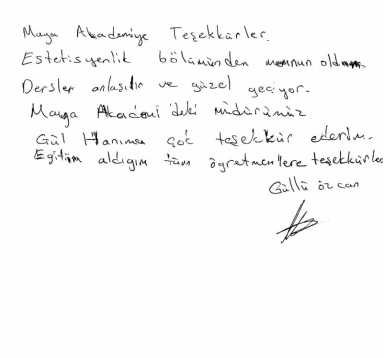 Maya Akademiye Teşekkürler.
Estetisyenlik bölümünden memnun oldum.
Dersler anlaşılır ve güzel geçiyor.
Maya Akademi'deki müdürümüz
Gül Hanıma çok teşekkür ederim.
Eğitim aldığım tüm öğretmenlere teşekkürler
Güllü özcan